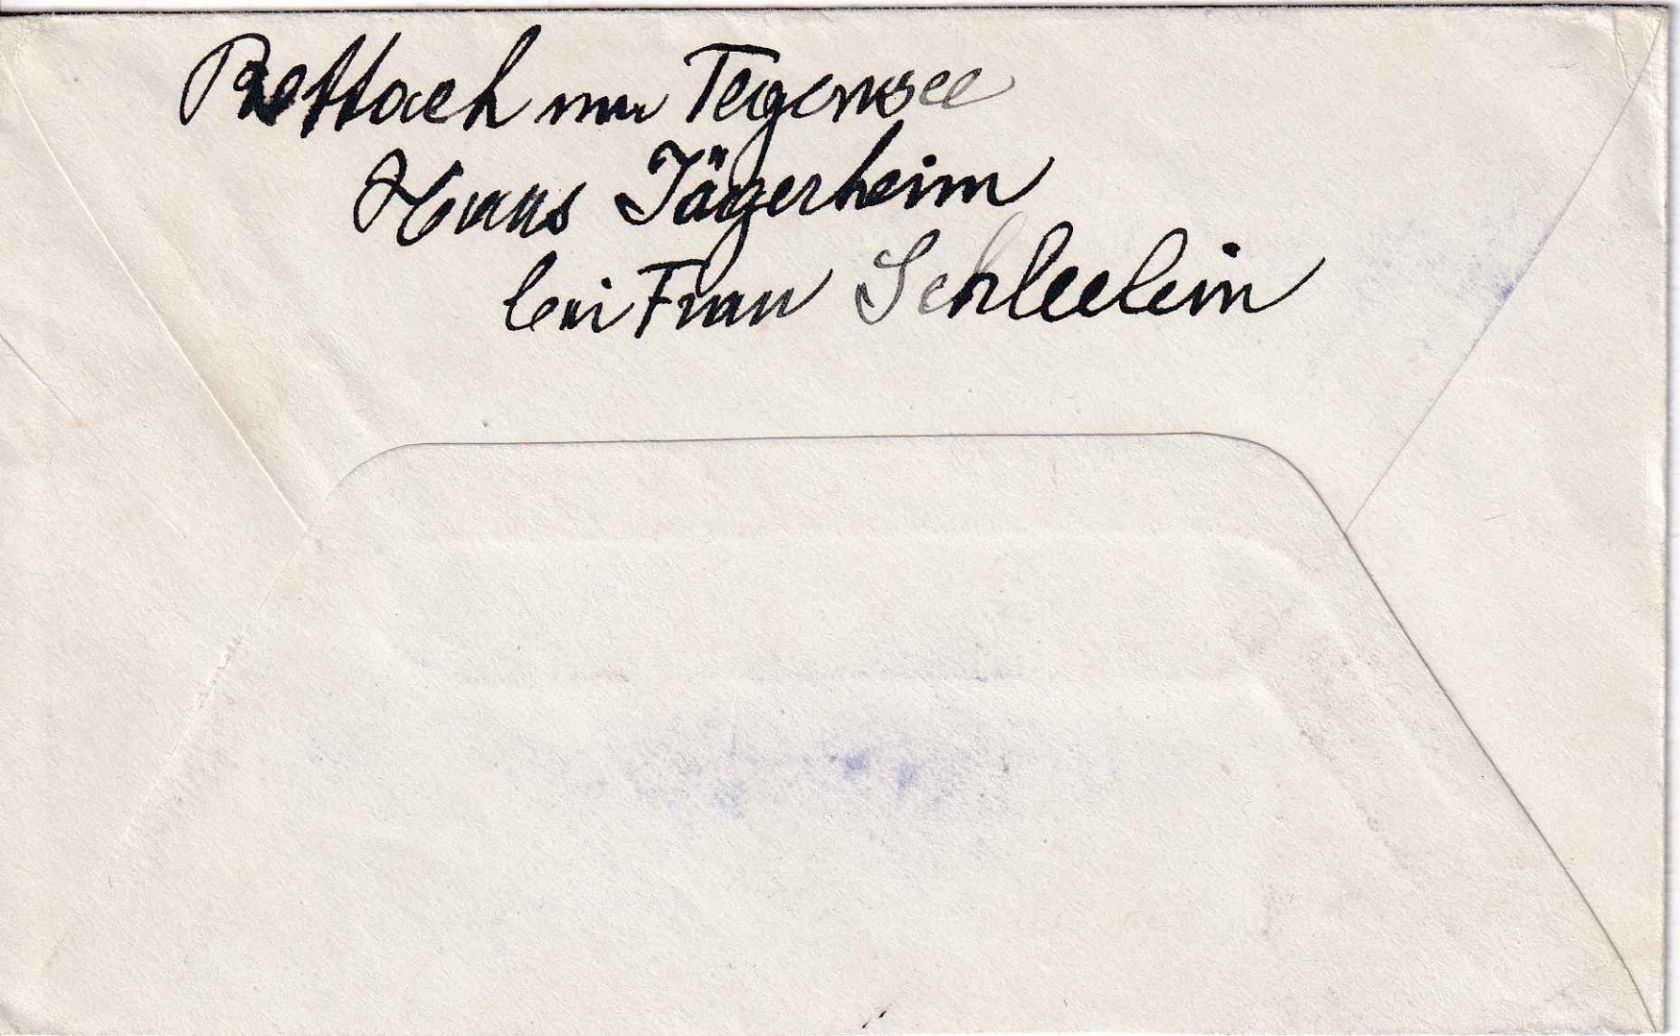 Rottach am Tegernsee
Haus Jägerheim
bei Frau